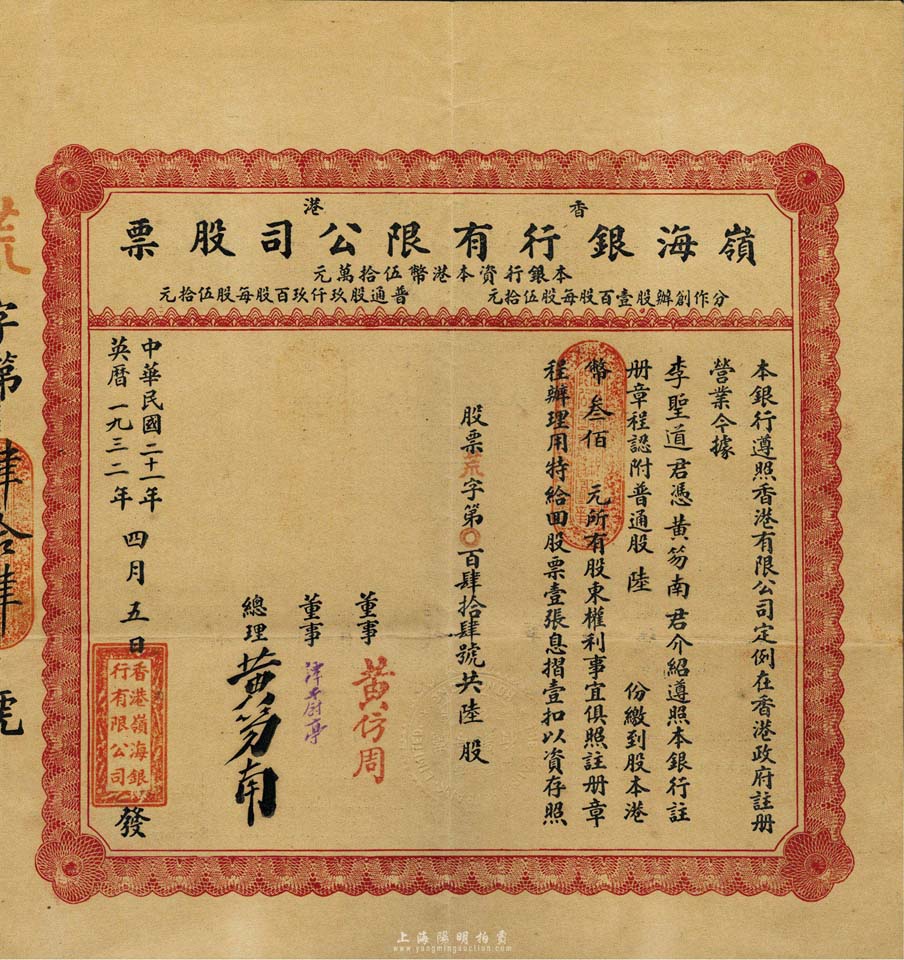 香港
嶺海銀行有限公司股票
本銀行資本港幣伍拾萬元
分作創辦股壹百股每股伍拾元
普通股玖仟玖百股每股伍拾元
本銀行遵照香港有限公司定例在香港政府註册
營業今據
李聖道君憑黃笏南君介紹遵照本銀行註
册章程認附普通股 陸 份繳到股本港
幣 叁佰 元所有股東權利事宜俱照註册章
程辦理用特給回股票壹張息摺壹扣以資存照
股票荒字第〇百肆拾肆號共陸股
董事 黃仿周
董事
總理 黃笏南
中華民國二十一年
英曆一九三二年 四月五日
香港嶺海銀
行有限公司
發
荒字第
肆拾肆號
上海陽明拍賣
www.yangmingauction.com